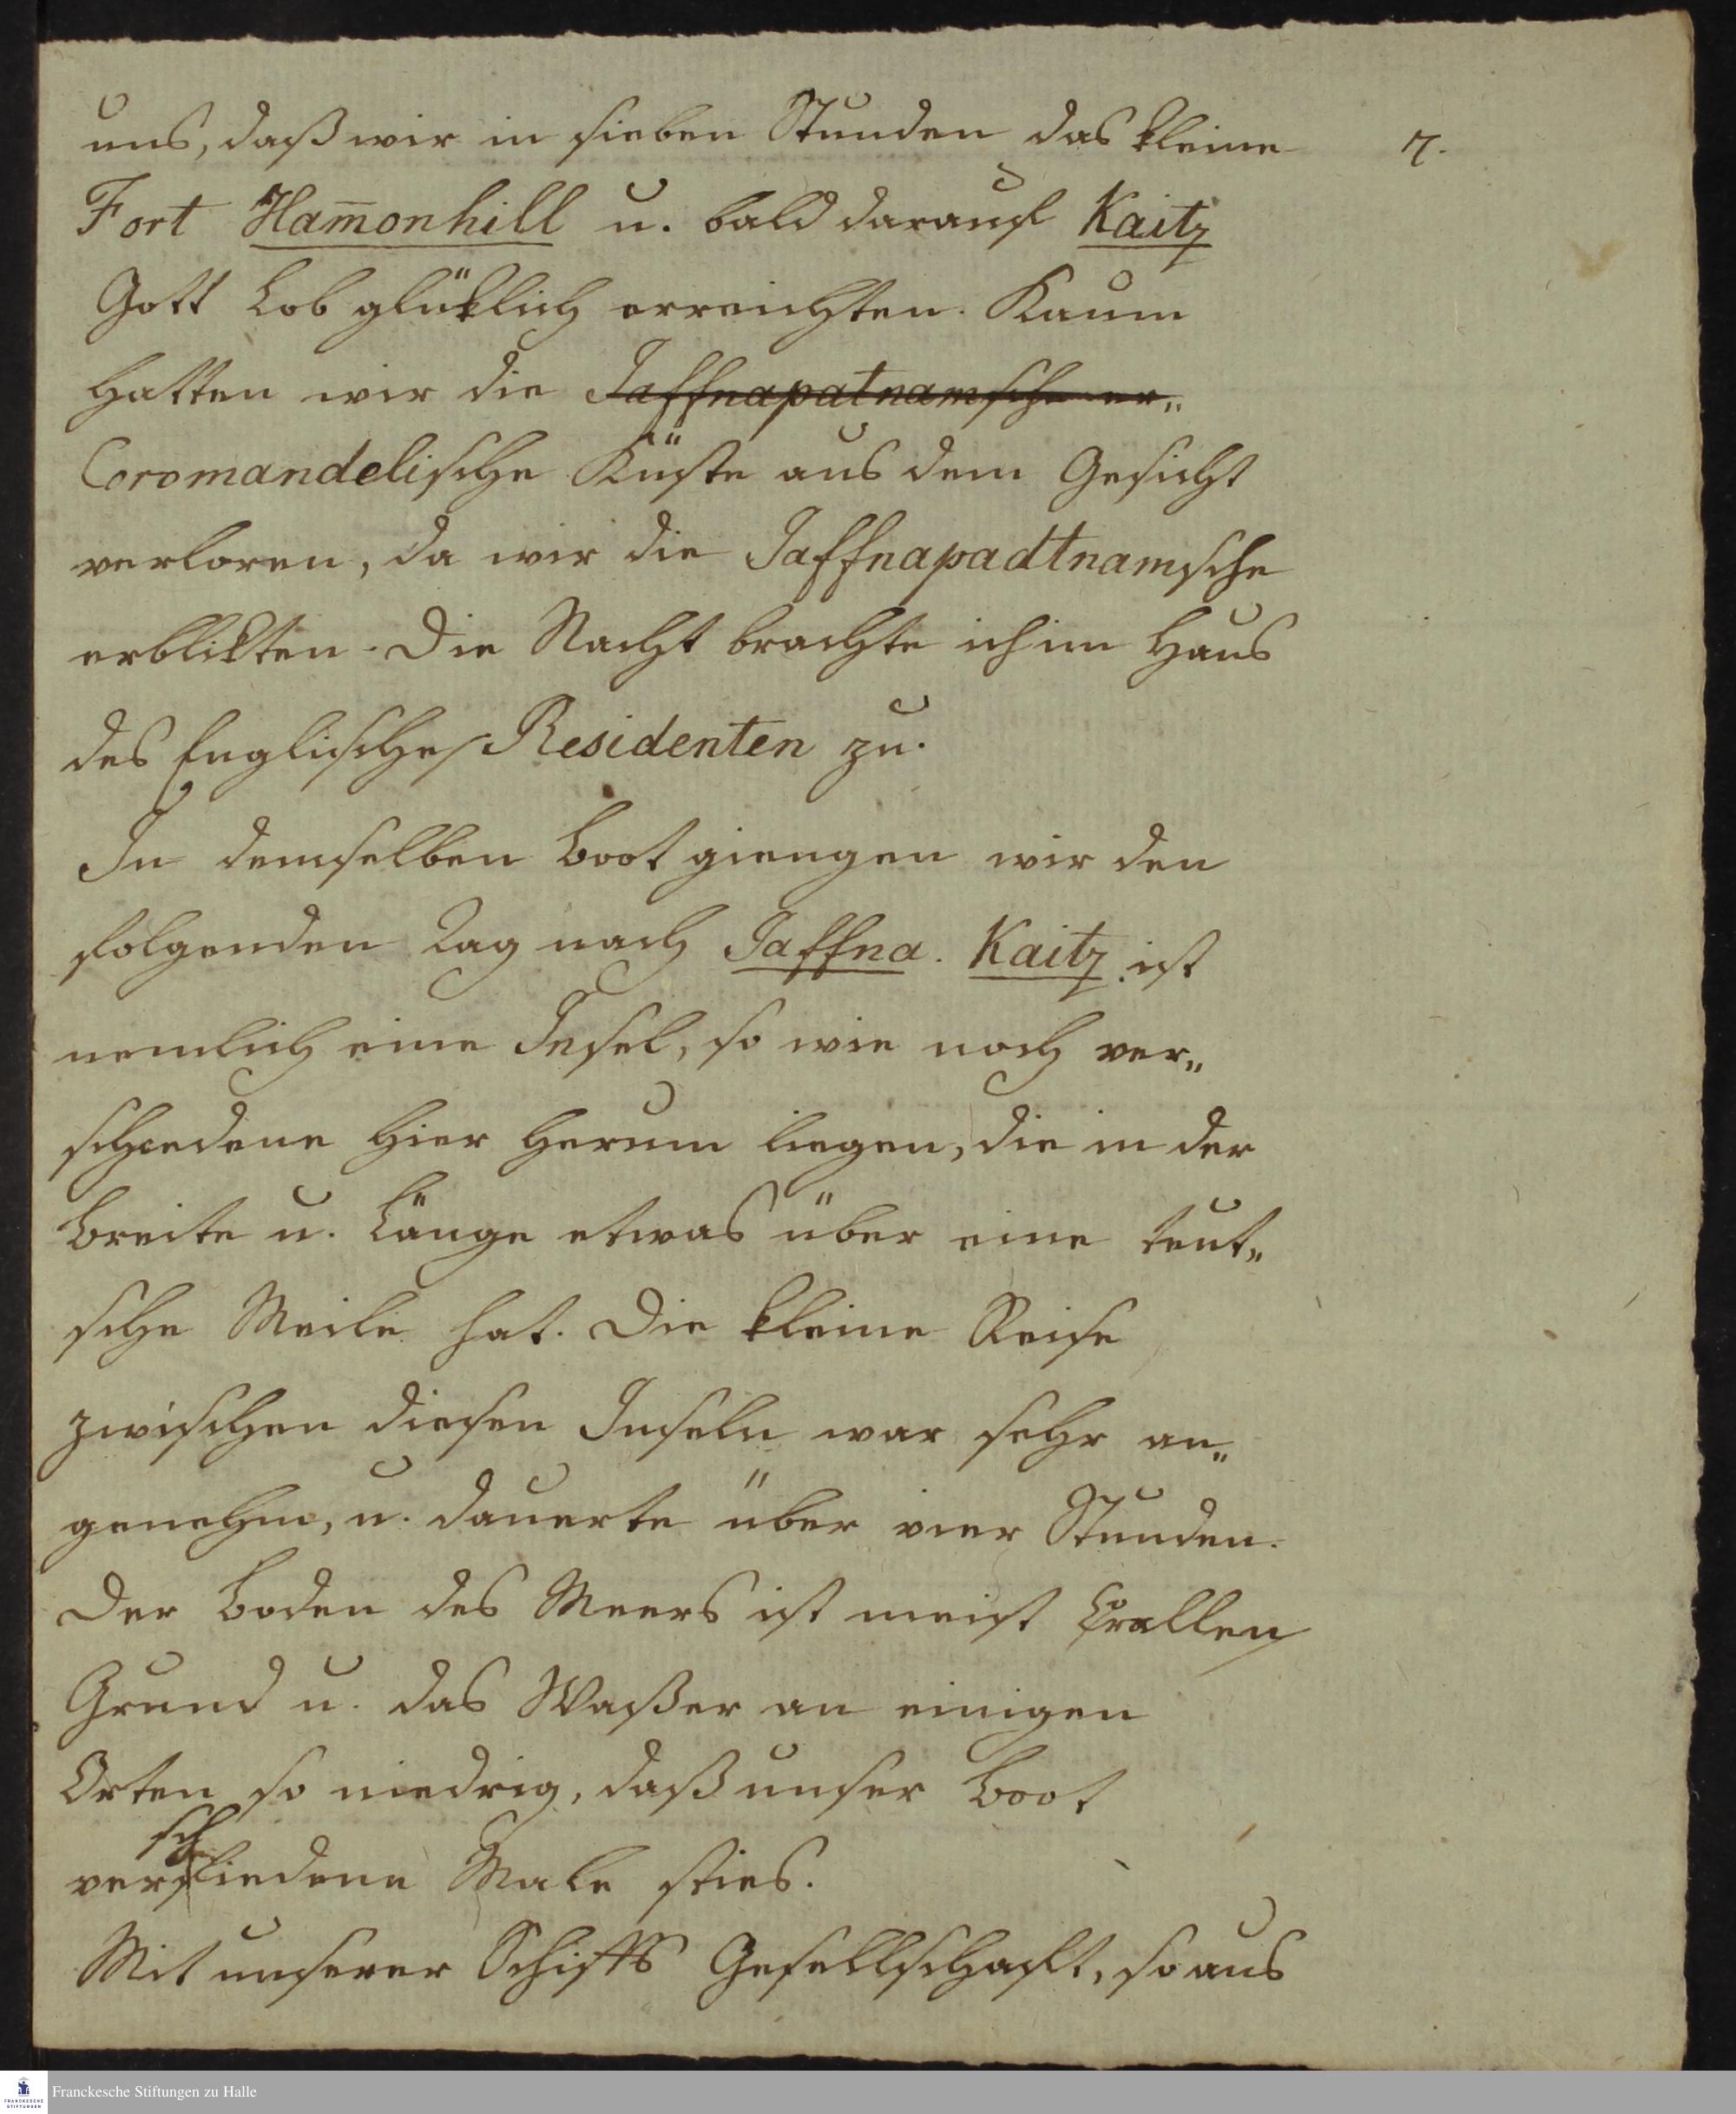 uns, daß wir in sieben Stunden das kleine
7.
Fort Ham̅onhill u. bald darauf Kaitz
Gott Lob glüklich erreichten. Kaum
hatten wir die Jaffnapatnamsche er„
Coromandelische Küste aus dem Gesicht
verloren, da wir die Jaffnapadtnamsche
erblikten. Die Nacht brachte ich im Haus
des Englischen Residenten zu.
In demselben Boot giengen wir den
folgenden Tag nach Jaffna. Kaitz ist
nemlich eine Insel, so wie noch ver„
schiedene hier herum liegen, die in der
Breite u. Länge etwas über eine teut„
sche Meile hat. Die kleine Reise
zwischen diesen Inseln war sehr an„
genehm, u. dauerte über vier Stunden.
Der Boden des Meers ist meist Corallen
Grund u. das Waßer an einigen
Orten so niedrig, daß unser Boot
verschiedene Male sties.
Mit unserer Schiffs Gesellschaft, so aus
FRANCKESCHE STIFTUNGEN
Franckesche Stiftungen zu Halle